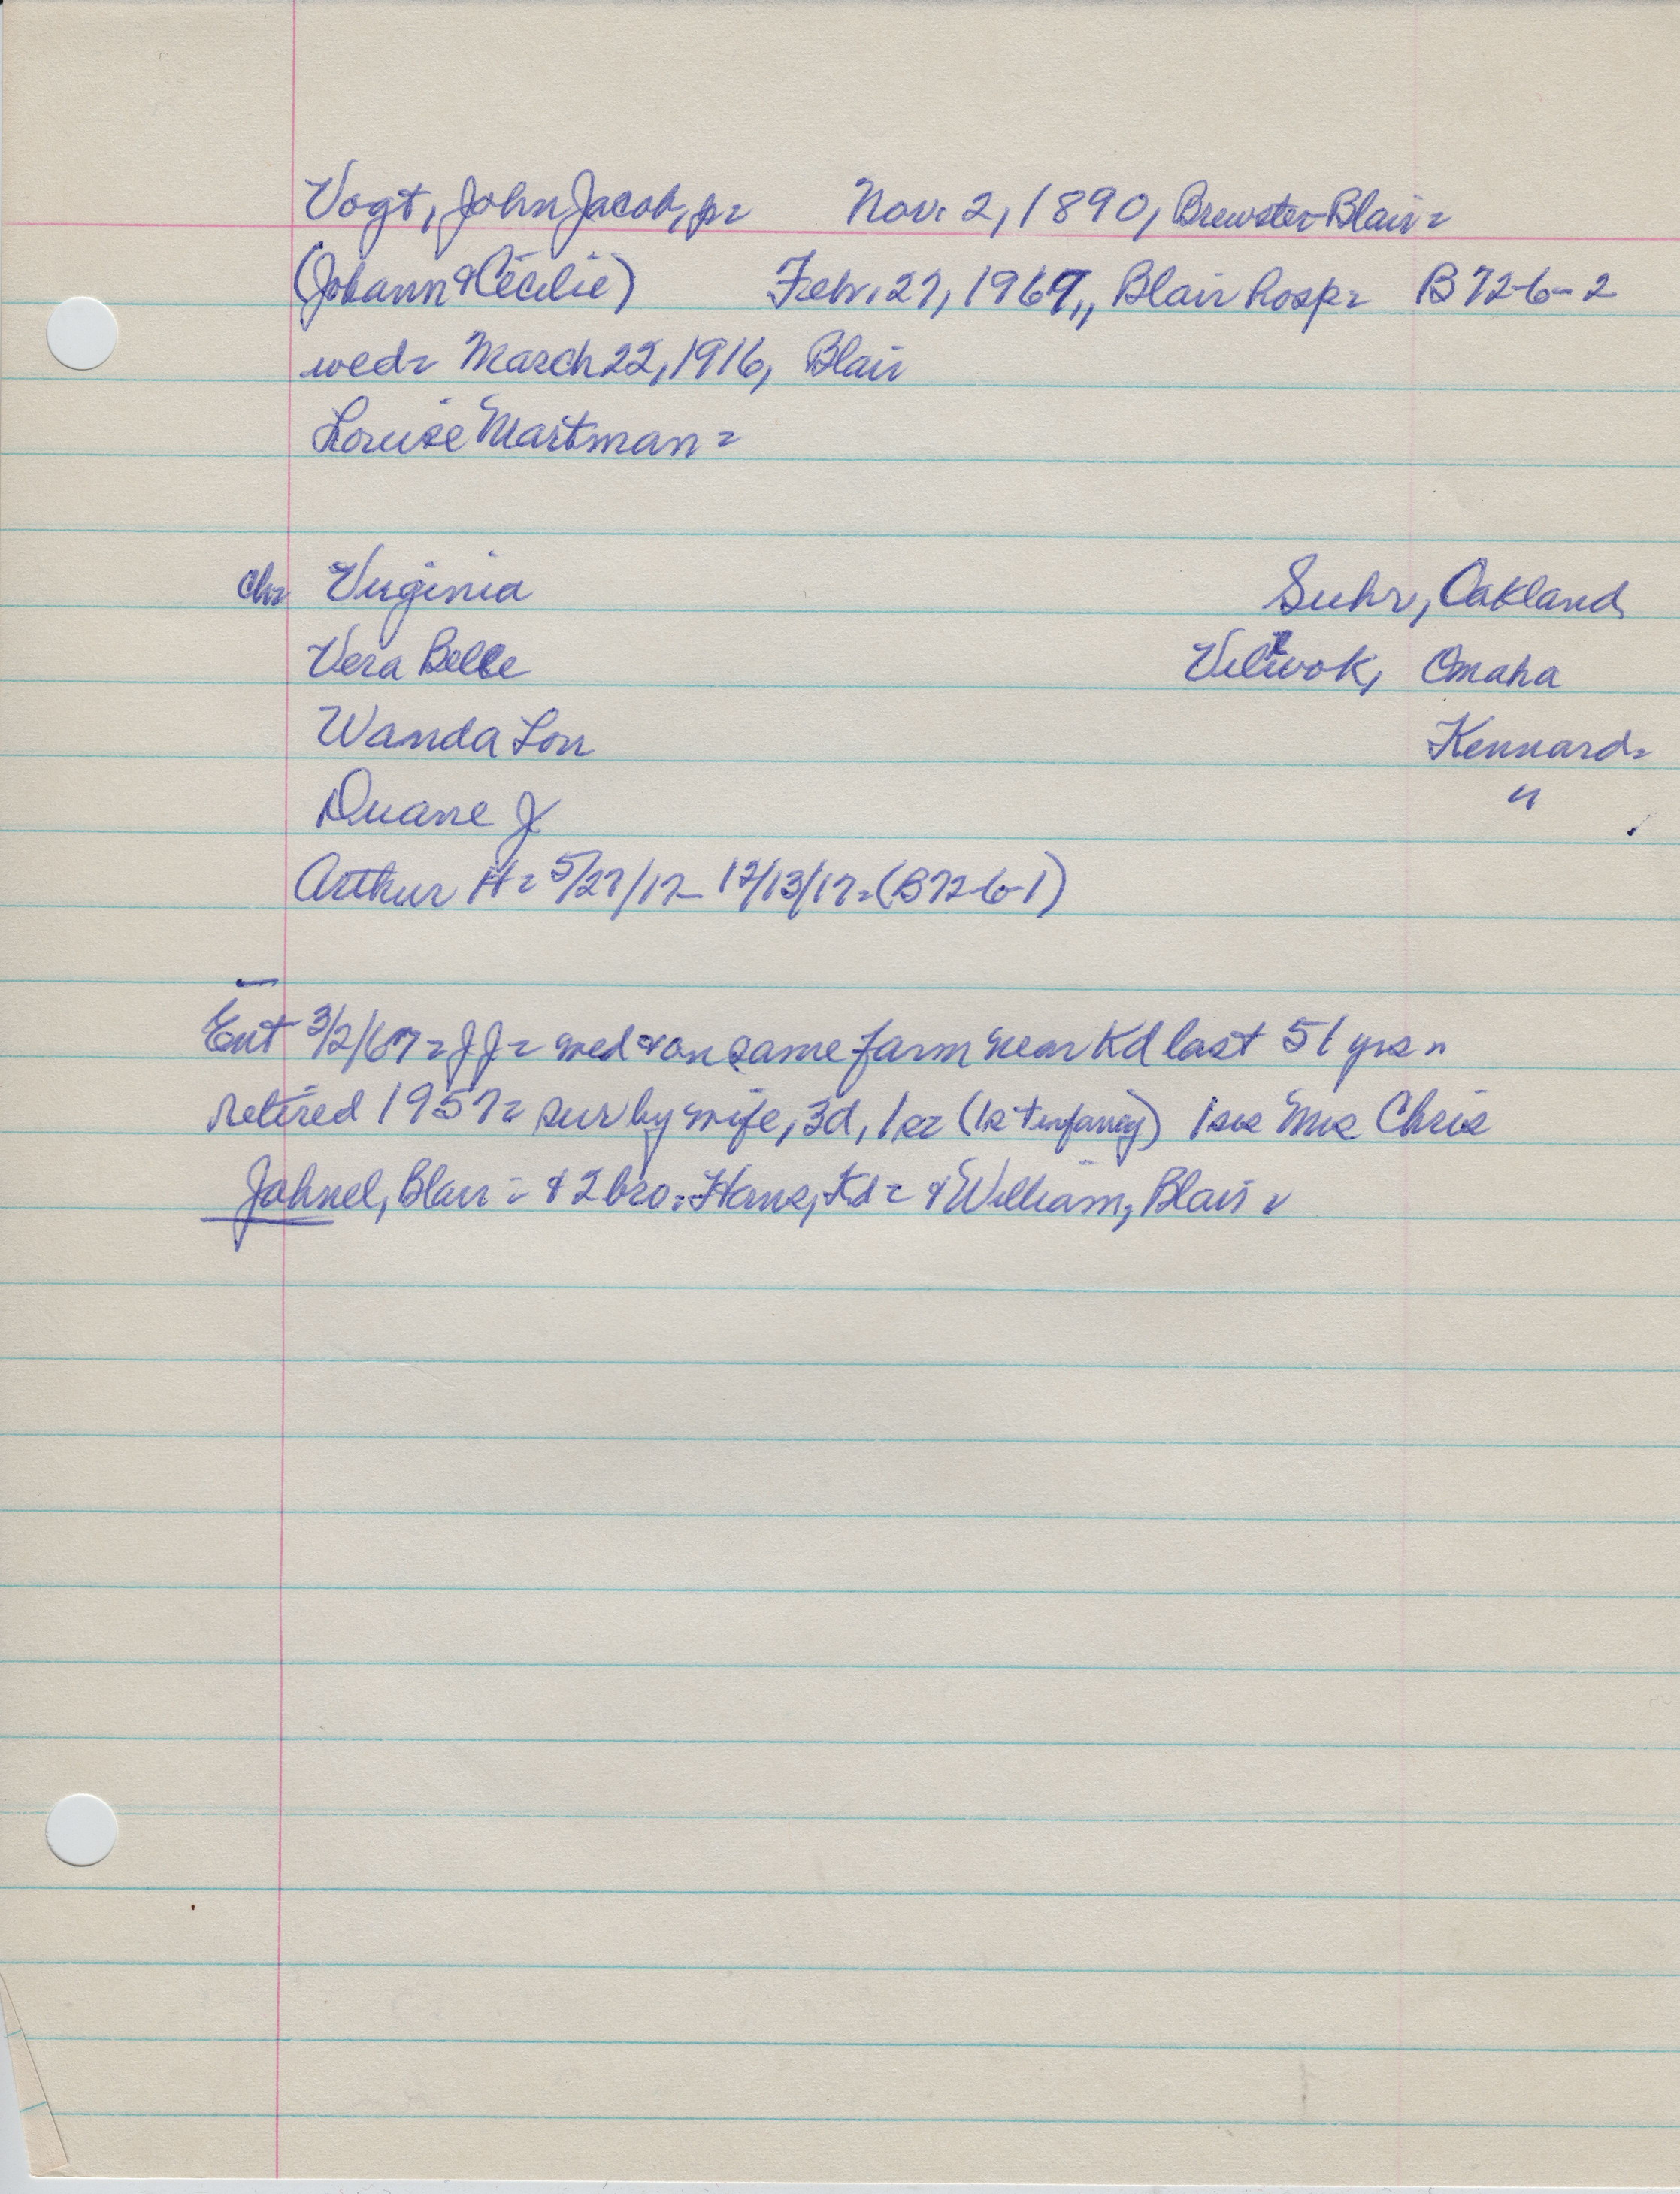 Vogt, John Jacob, p= Nov. 2, 1890, Brewster-Blair=
(Johann & Cecilie) Febr. 27, 1967,, Blair hosp= B72-6-2
wed= March 22, 1916, Blair
Louise Martman=
ch= Virginia Suhr, Oakland
Vera Belle Omaha
Wanda Lou Kennard=
Duane J "
Arthur H= 5/27/17- 12/13/17=(B72-6-1)
Ent 3/2/67= JJ= wed & on same farm near Kd last 51 yrs=
retired 1957= sur by wife, 3d, 1s= (1s + infancy) 1 sis Mrs Chris
Johnel, Blair= & 2 bro= Hans, Kd= & William, Blair=